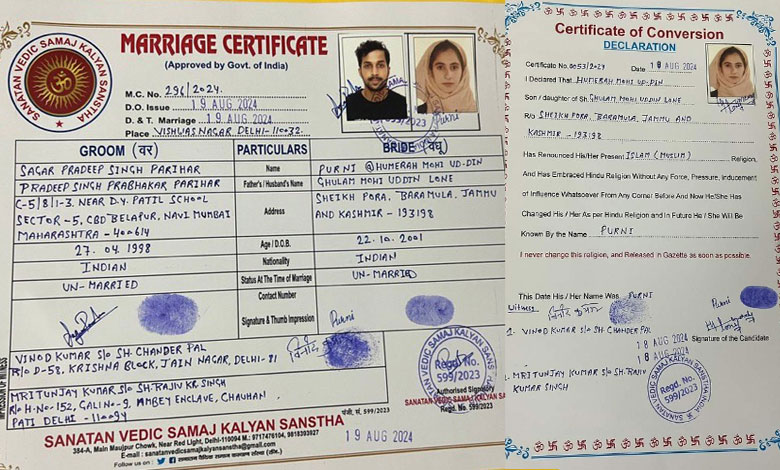 SANATAN VEDIC SAMAJ KALYAN SANSTHA
MARRIAGE CERTIFICATE
(Approved by Govt. of India)
M.C. No. 296/2024.
D.O. Issue 19 AUG 2024
D. & T. Marriage 19 AUG 2024
Place VISHWAS NAGAR DELHI-110032.
GROOM (वर) PARTICULARS BRIDE (वधू)
SAGAR PRADEEP SINGH PARIHAR Name PURNI @ HUMERAH MOHI UD-DIN
PRADEEP SINGH PRABHAKAR PARIHAR Father's / Husband's Name GHULAM MOHI UDDIN LONE
C-5/8/1-3, NEAR D.Y. PATIL SCHOOL
SECTOR-5, CBD BELAPUR, NAVI MUMBAI
MAHARASHTRA - 400614
Address
SHEIKH PORA, BARAMULA, JAMMU
AND KASHMIR - 193198
27.04.1998 Age / D.O.B. 22.10.2001
INDIAN Nationality INDIAN
UN-MARRIED Status At The Time of Marriage UN-MARRIED
Contact Number
Signature & Thumb Impression Purni
VINOD KUMAR S/o SH. CHANDER PAL
R/o D-58, KRISHNA BLOCK, JAIN NAGAR, DELHI-81
MRITUNJAY KUMAR S/o SH. RAJIV KR. SINGH
R/o H-No-152, GALI No-9, AMBEY ENCLAVE, CHAUHAN
PATI DELHI - 110094
SANATAN VEDIC SAMAJ KALYAN SANSTHA
Regd. No.
599/2023
Authorised Signatory
SANATAN VEDIC SAMAJ KALYAN SANSTHA
Regd. No. 599/2023
पंजी. सं. 599/2023
SANATAN VEDIC SAMAJ KALYAN SANSTHA
384-A, Main Maujpur Chowk, Near Red Light, Delhi-110094 M.: 9717476104, 9818393927
E-mail : sanatanvedicsamajkalyansanstha@gmail.com
Follow us on :
19 AUG 2024
Certificate of Conversion
DECLARATION
Certificate No. 0053/2024 Date 18 AUG 2024
I Declared That HUMERAH MOHI UD-DIN
Son / daughter of SH. GHULAM MOHI UDDIN LONE
R/o SHEIKH PORA, BARAMULA, JAMMU AND
KASHMIR - 193198
Has Renounced His/Her Present ISLAM (MUSLIM) Religion.
And Has Embraced Hindu Religion Without Any Force, Pressure, Inducement
of Influence Whatsoever From Any Corner Before and Now He/She Has
Changed His / Her As per Hindu Religion and In Future He / She Will Be
Known By the Name PURNI
I never change this religion, and Released in Gazette as soon as possible.
This Date His / Her Name Was PURNI
Witness
Purni
1. VINOD KUMAR S/o SH. CHANDER PAL
18 AUG 2024
Signature of the Candidate
18 AUG 2024
MRITUNJAY KUMAR S/o SH. RAJIV
KUMAR SINGH
Regd. No.
599/2023